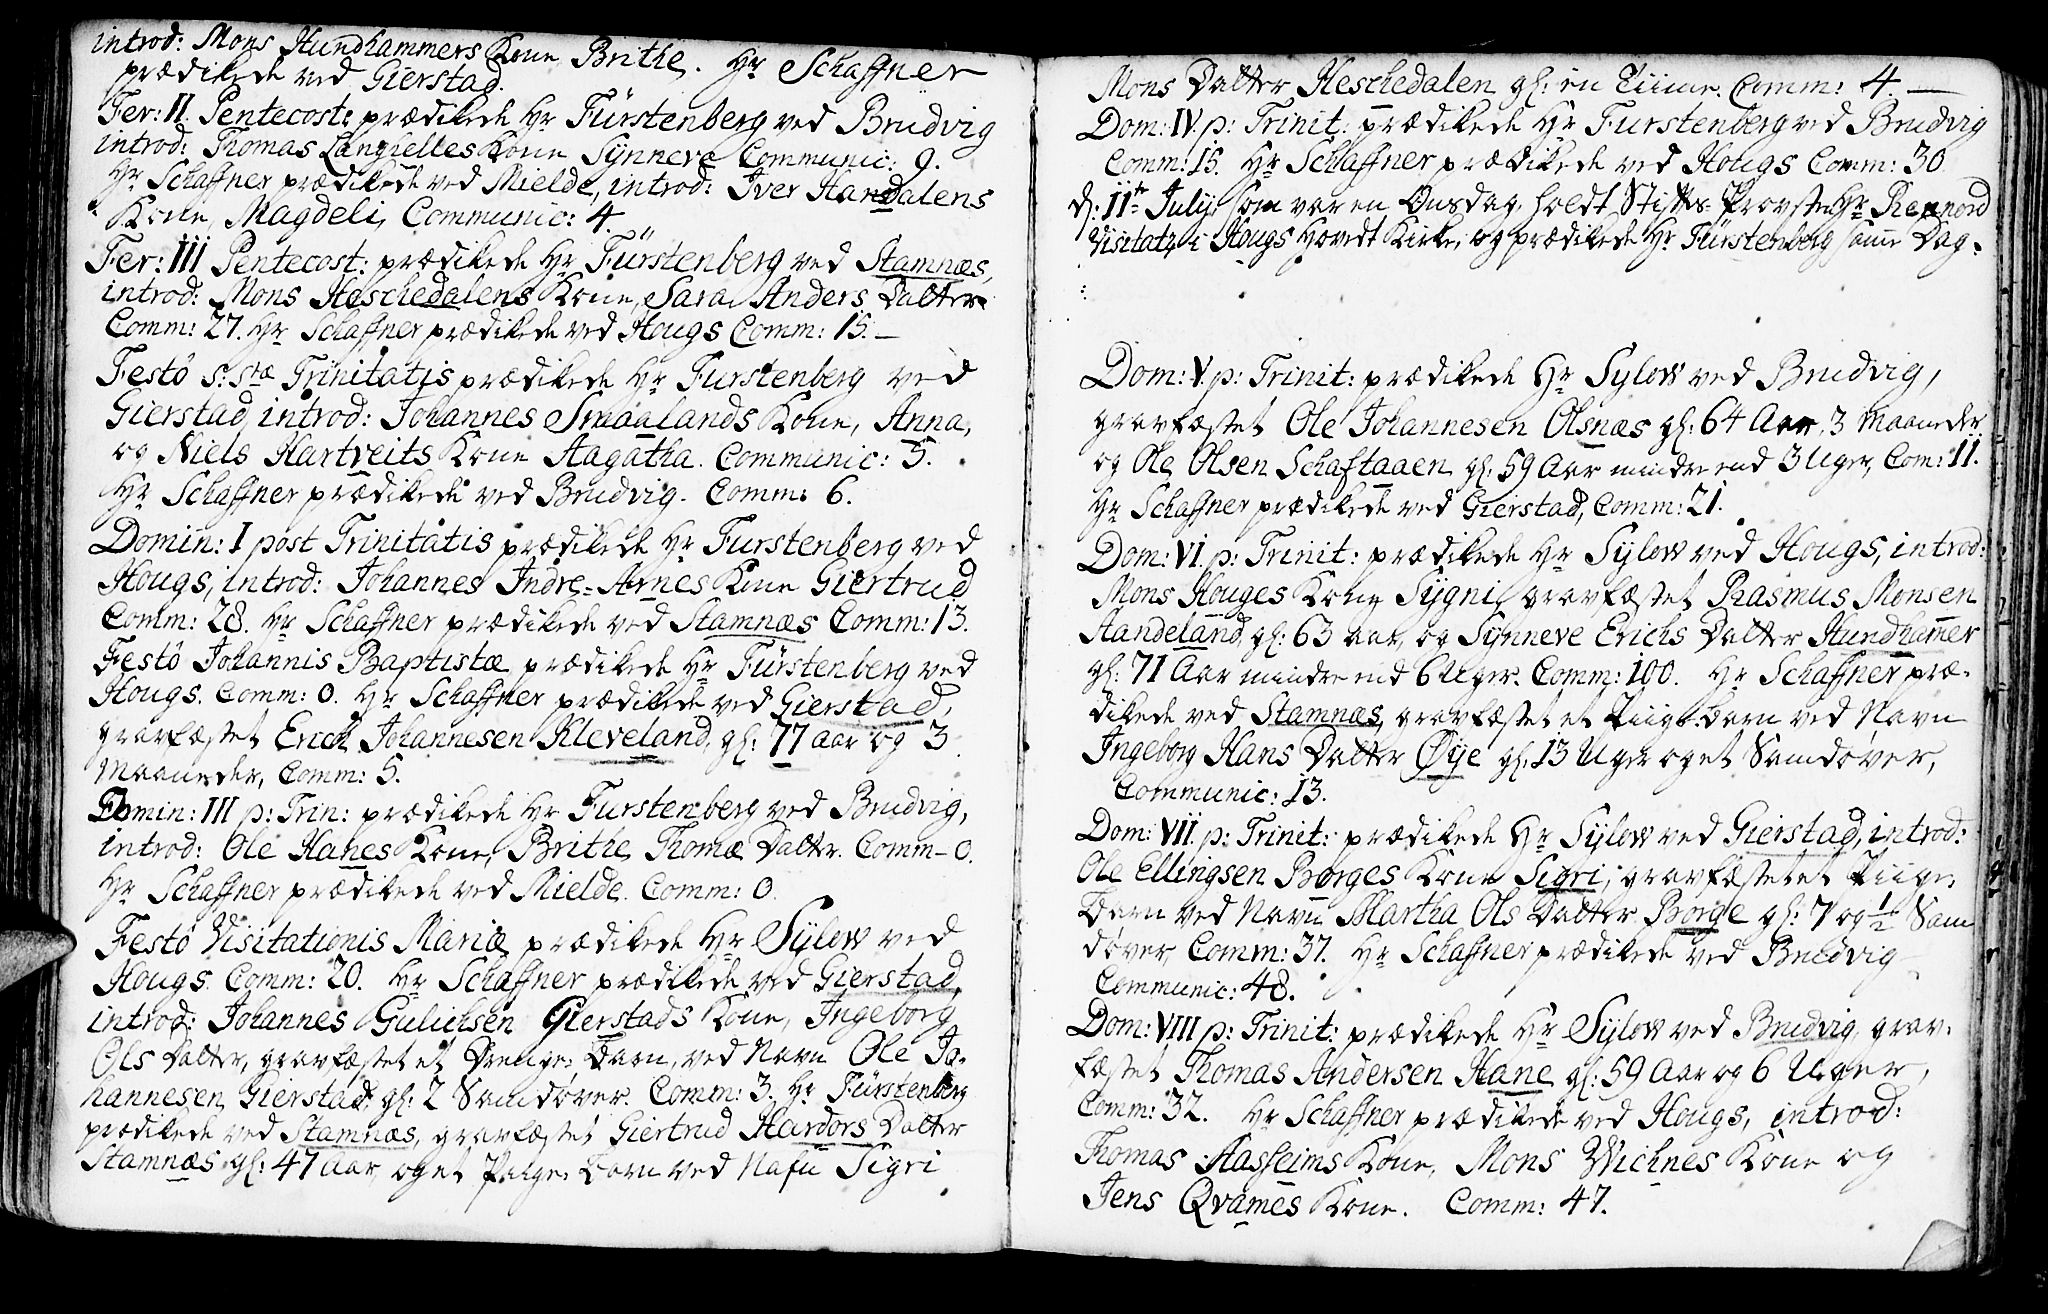 introd: Mons Hundhammers Kone Brithe. Hr Schaffner
prædikede ved Gierstad.
Fer: II. Pentecost: prædikede Hr Fürstenberg ved Brudvig
introd: Thomas Langielles Kone Synneve Communic: 9.
Hr Schaffner prædikede ved Mielde, introd: Iver Handalens
Kone, Magdeli, Communic: 4.
Fer: III Pentecost: prædikede Hr Fürstenberg ved Stamnæs,
introd: Mons Heschedalens Kone, Sara Anders Datter
Comm: 27. Hr Schaffner prædikede ved Hougs Comm: 15.—
Festô S: Stæ Trinitatis prædikede Hr Furstenberg ved
Gierstad, introd: Johannes Smaalands Kone, Anna,
og Niels Hartveits Kone Aagatha. Communic: 5.
Hr Schaffner prædikede ved Brudvig. Comm: 6.
Domin: I post Trinitatis prædikede Hr Furstenberg ved
Hougs, introd: Johannes Indre=Arnes Kone Giertrud
Comm: 28. Hr Schaffner prædikede ved Stamnæs Comm: 13.
Festô Johannis Baptistæ prædikede Hr Fürstenberg ved
Hougs. Comm: 0. Hr Schaffner prædikede ved Gierstad,
gravfæstet Erick Johannesen Kleveland, gl: 77 aar og 3
Maaneder, Comm: 5.
Domin: III p: Trin: prædikede Hr Furstenberg ved Brudvig,
introd: Ole Hanes Kone, Brithe Thomæ Datter. Comm— 0.
Hr Schaffner prædikede ved Mielde. Comm: 0.
Festô Visitationis Mariæ prædikede Hr Sylow ved
Hougs. Comm: 20. Hr Schaffner prædikede ved Gierstad,
introd: Johannes Gulichsen Gierstads Kone, Ingeborg
Ols Datter, gravfæstet et Drenge, Barn, ved Navn Ole Jo-
hannesen Gierstad, gl: 2 Samdøver. Comm: 3. Hr Fürstenberg
prædikede ved Stamnæs, gravfæstet Giertrud Hardors Datter
Stamnæs, gl: 47 Aar, og et Piige Barn ved Nafn Sigri
Mons Datter Heschedalen gl: en Tiime. Comm: 4.—
Dom: IV. p: Trinit: prædikede Hr Furstenberg ved Brudvig
Comm: 15. Hr Schaffner prædikede ved Hougs Comm: 30
d: 11te July, som var en Onsdag, holdt Stifts-Provsten Hr Rennord
Visitatz i Hougs Hovedt Kirke, og prædikede Hr Fürstenberg samme Dag.
Dom: V. p: Trinit: prædikede Hr Sylow ved Brudvig,
gravfæstet Ole Johannesen Olsnæs gl: 64 Aar, 3 Maaneder
og Ole Olsen Schaftaaen gl: 59 Aar mindre end 3 Uger, Com: 11.
Hr Schaffner prædikede ved Gierstad, Comm: 21.
Dom: VI. p: Trinit: prædikede Hr Sylow ved Hougs, introd:
Mons Houges Kone Sygni, gravfæstet Rasmus Monsen
Aandeland, gl: 63 aar, og Synneve Erichs Datter Hundhamer
gl: 71 Aar mindre end 6 Uger. Comm: 100. Hr Schaffner præ-
dikede ved Stamnæs, gravfæstet et Piige-Barn ved Navn
Ingeborg Hans Datter Øye gl: 13 Uger og et Samdøver,
Communic: 13.
Dom: VII. p: Trinit: prædikede Hr Sylow ved Gierstad, introd:
Ole Ellingsen Borges Kone Sigri, gravfæstet et Piige,
Barn ved Navn Martha Ols Datter Borge gl: 7 og 1/2 Sam
døver, Comm: 37. Hr Schaffner prædikede ved Brudvig
Communic: 48.
Dom: VIII p: Trinit: prædikede Hr Sylow ved Brudvig, grav-
fæstet Thomas Andersen Hane gl: 59 Aar og 6 Uger,
Comm: 32. Hr Schaffner prædikede ved Hougs, introd:
Thomas Aasheims Kone, Mons Wichnes Kone og
Jens Qvames Kone. Comm: 47.